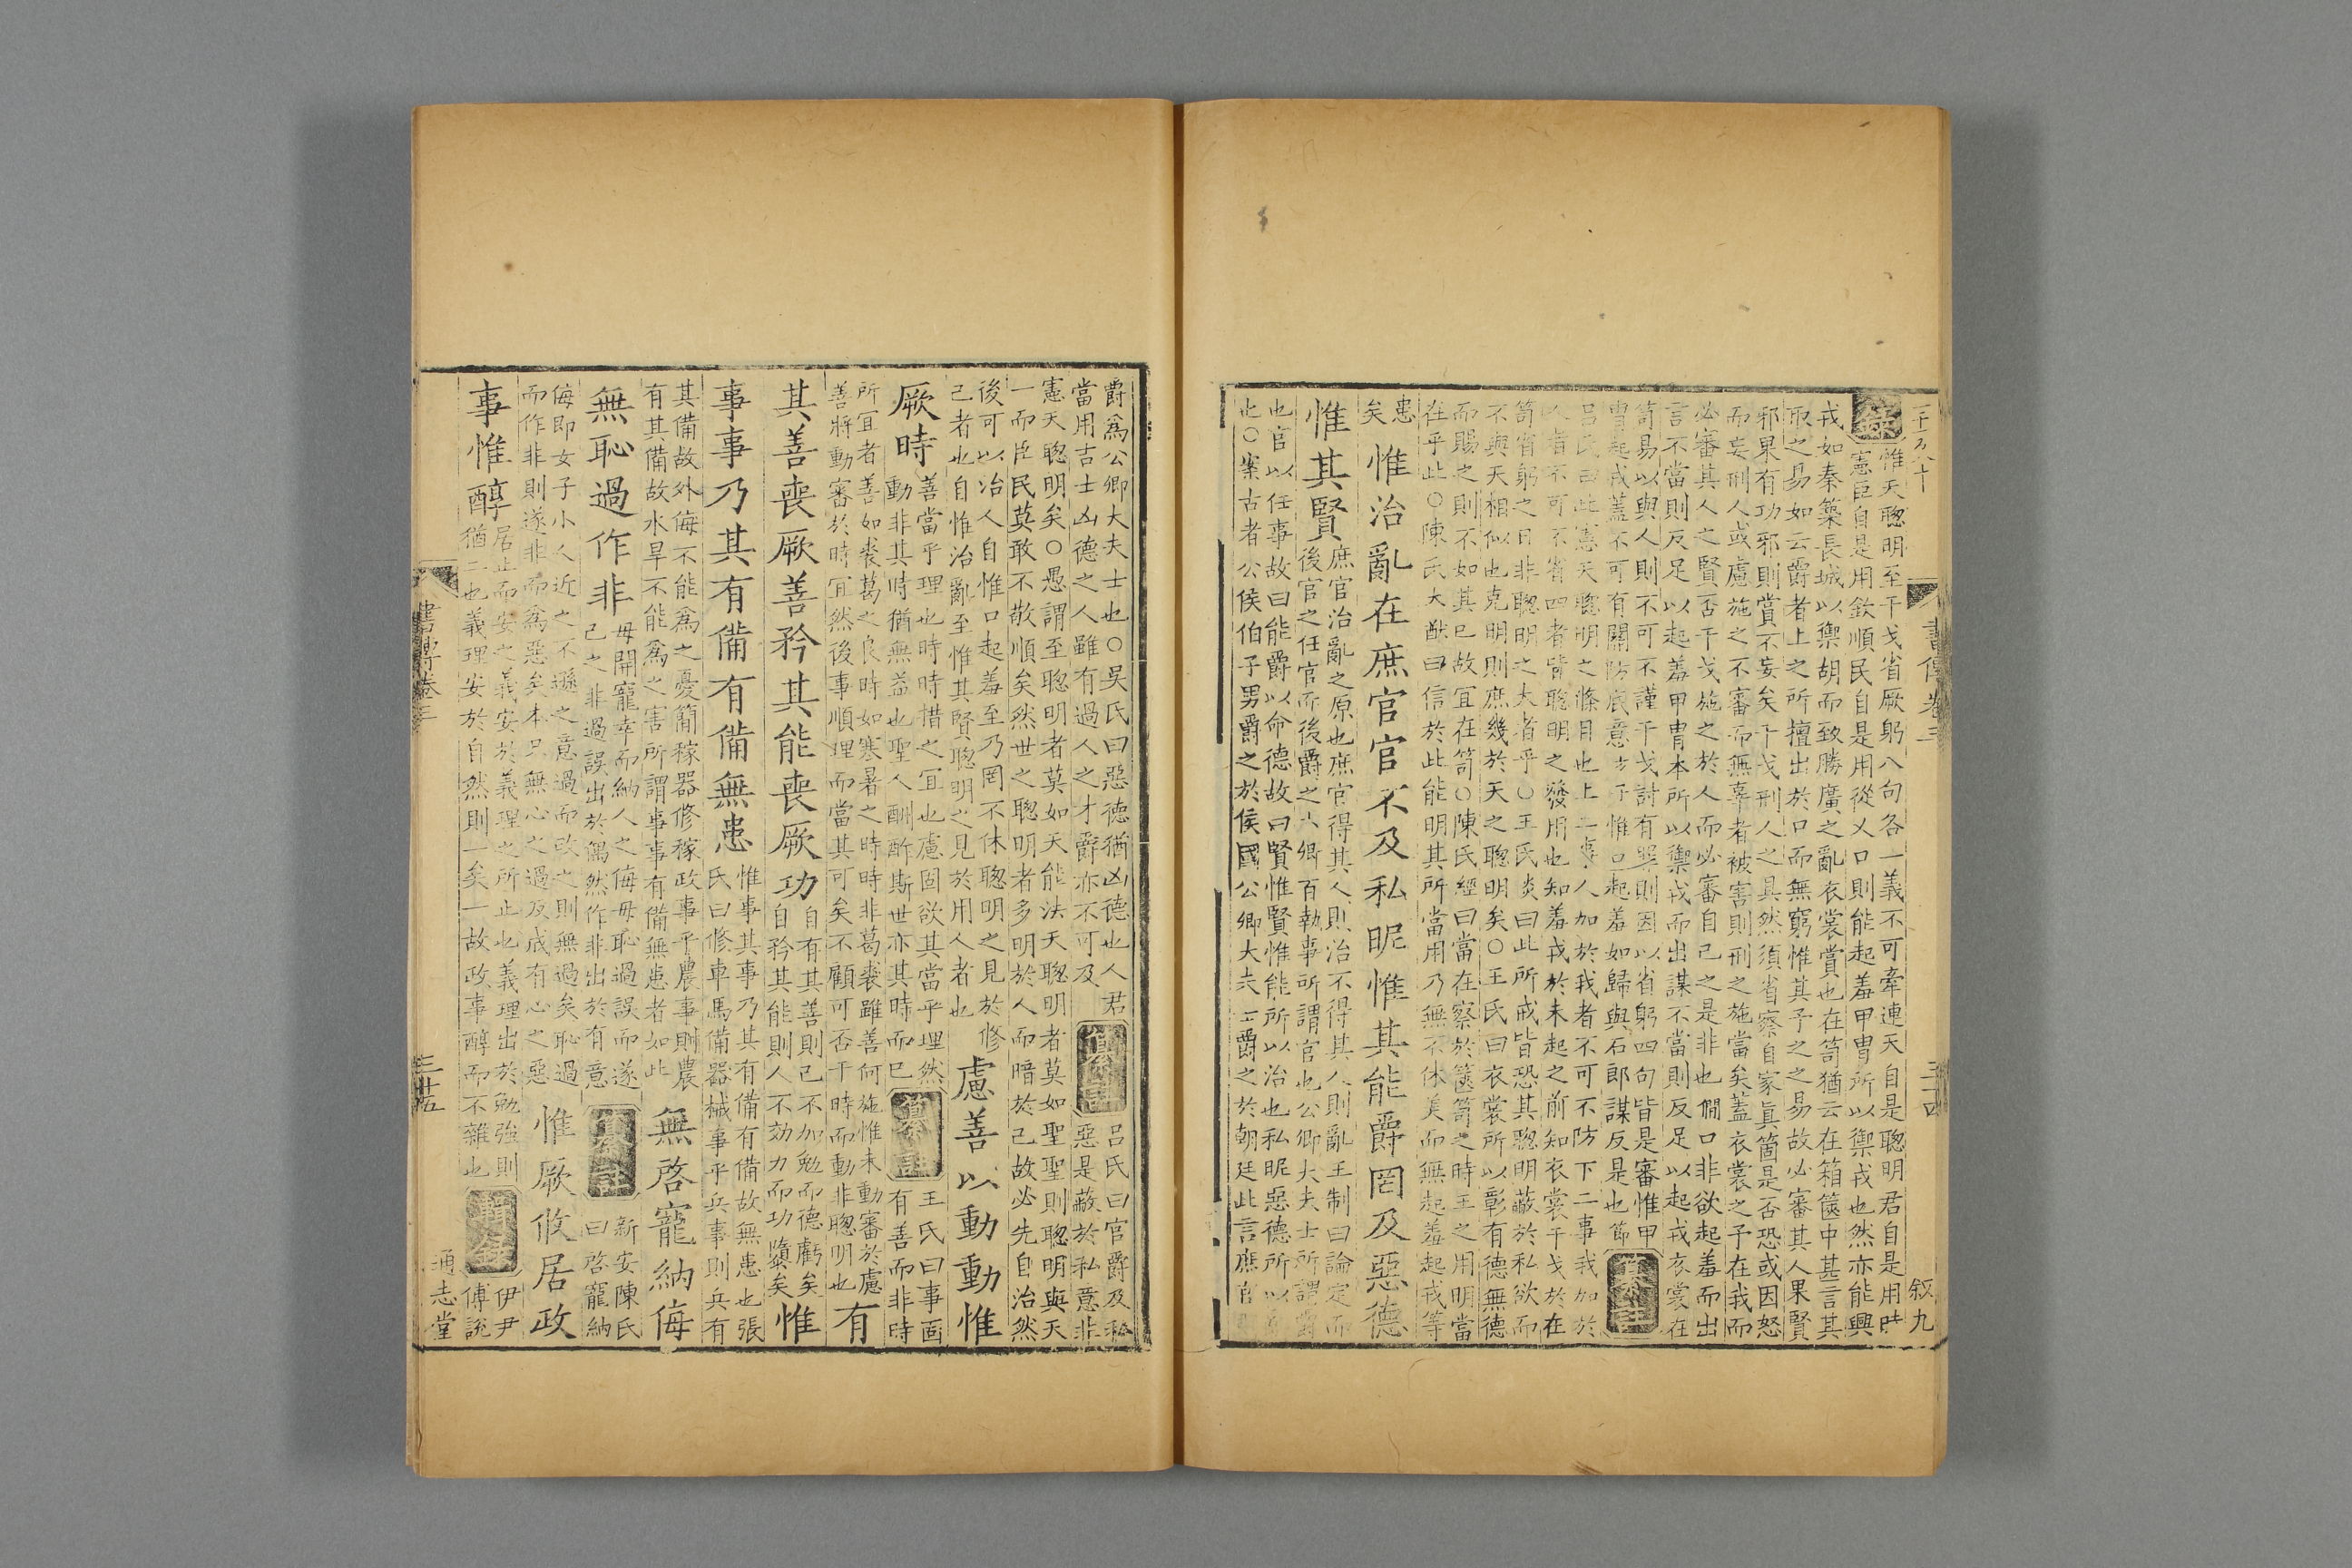 惟天聰明至干戈省厥躬八句各一義不可牽連天自是聰明君自是用時
憲臣自是用欽順民自是用從乂口則能起羞甲冑所以禦戎也然亦能興
戎如秦築長城以禦胡而致勝廣之亂衣裳賞也在笥猶云在箱篋中甚言其
取之易如云爵者上之所擅出於口而無窮惟其予之之易故必審其人果賢
邪果有功邪則賞不妄矣干戈刑人之具然須省察自家真箇是否恐或因怒
而妄刑人或慮施之不審而無辜者被害則刑之施當矣蓋衣裳之予在我而
必審其人之賢否干戈施之於人而必審自己之是非也僩口非欲起羞而出
言不當則反足以起羞甲冑本所以禦戎而出謀不當則反足以起戎衣裳在
笥易以與人則不可不謹干戈討有罪則因以省躬四句皆是審惟甲
冑起戎蓋不可有關防底意惟口起羞如歸與石郎謀反是也節
纂註
呂氏曰此憲天聰明之條目也上二事人加於我者不可不防下二事我加於
人者不可不省四者皆聰明之發用也知羞戎於未起之前知衣裳干戈於在
笥省躬之日非聰明之大者乎○王氏炎曰此所戒皆恐其聰明蔽於私欲而
不與天相似也克明則庶幾於天之聰明矣○王氏曰衣裳所以彰有德無德
而賜之則不如其已故宜在笥○陳氏經曰當在察於篋笥之時王之用明當
在乎此○陳氏大猷曰信於此能明其所當用乃無不休美而無起羞起戎等
患矣
惟治亂在庶官官不及私昵惟其能爵罔及惡德
惟其賢
庶官治亂之原也庶官得其人則治不得其人則亂王制曰論定而
後官之任官而後爵之六卿百執事所謂官也公卿大夫士所謂爵
也官以任事故曰能爵以命德故曰賢惟賢惟能所以治也私昵惡德所以
也○案古者公侯伯子男爵之於侯國公卿大夫士爵之於朝廷此言庶官
書傳卷三
叙九
爵為公卿大夫士也○吳氏曰惡德猶凶德也人君
當用吉士凶德之人雖有過人之才爵亦不可及
纂註
呂氏曰官爵及私
惡是蔽於私意非
憲天聰明矣○愚謂至聰明者莫如天能法天聰明者莫如聖聖則聰明與天
一而臣民莫敢不敬順矣然世之聰明者多明於人而暗於己故必先自治然
後可以治人自惟口起羞至乃罔不休聰明之見於修
己者也自惟治亂至惟其賢聰明之見於用人者也
慮善以動動惟
厥時
善當乎理也時時措之宜也慮固欲其當乎理然
動非其時猶無益也聖人酬酢斯世亦其時而已
纂註
王氏曰事固
有善而非時
所宜者善如裘葛之良時如寒暑之時時非葛裘雖善何施惟未動審於慮
善將動審於時宜然後事順理而當其可矣不顧可否干時而動非聰明也
有
其善喪厥善矜其能喪厥功
自有其善則己不加勉而德虧矣
自矜其能則人不効力而功隳矣
惟
事事乃其有備有備無患
惟事其事乃其有備有備故無患也張
氏曰修車馬備器械事乎兵事則兵有
其備故外侮不能為之憂簡稼器修稼政事乎農事則農
有其備故水旱不能為之害所謂事事有備無患者如此
無啓寵納侮
無恥過作非
毋開寵幸而納人之侮毋恥過誤而遂
己之非過誤出於偶然作非出於有意
纂註
新安陳氏
曰啓寵納
侮即女子小人近之不遜之意過而改之則無過矣恥過
而作非則遂非而為惡矣本只無心之過反成有心之惡
惟厥攸居政
事惟醇
居止而安之義安於義理之所止也義理出於勉強則
猶二也義理安於自然則一矣一故政事醇而不雜也
伊尹
傅說
書傳卷三
三十五
通志堂